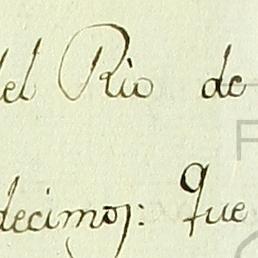 del Rio de
decimos: Que